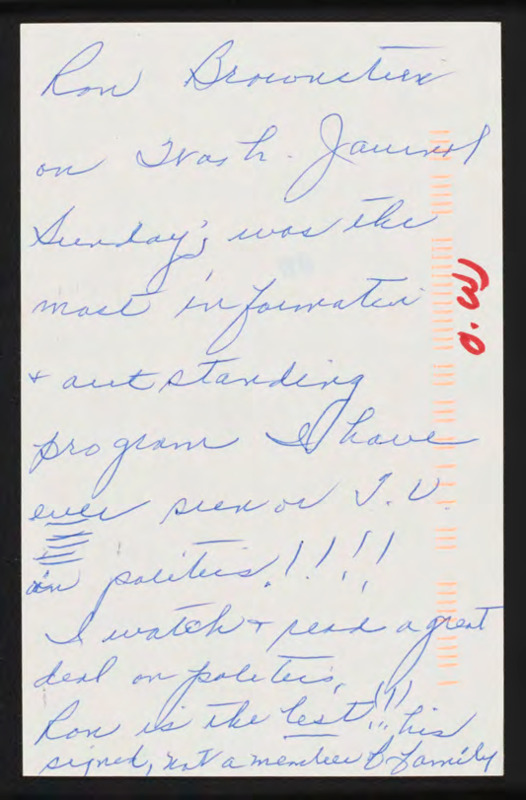 Ron Brownstein
on Wash. Journal
Sunday, was the
most informative
+ outstanding
program I have
ever seen on T.V.
on politics!!!!
I watch + read a great
deal on politics,
Ron is the best!!! his
signed, not a member of family
O.W